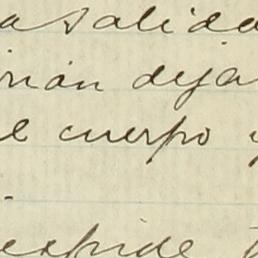 a salida
rán deja
el cuerpo y
expide